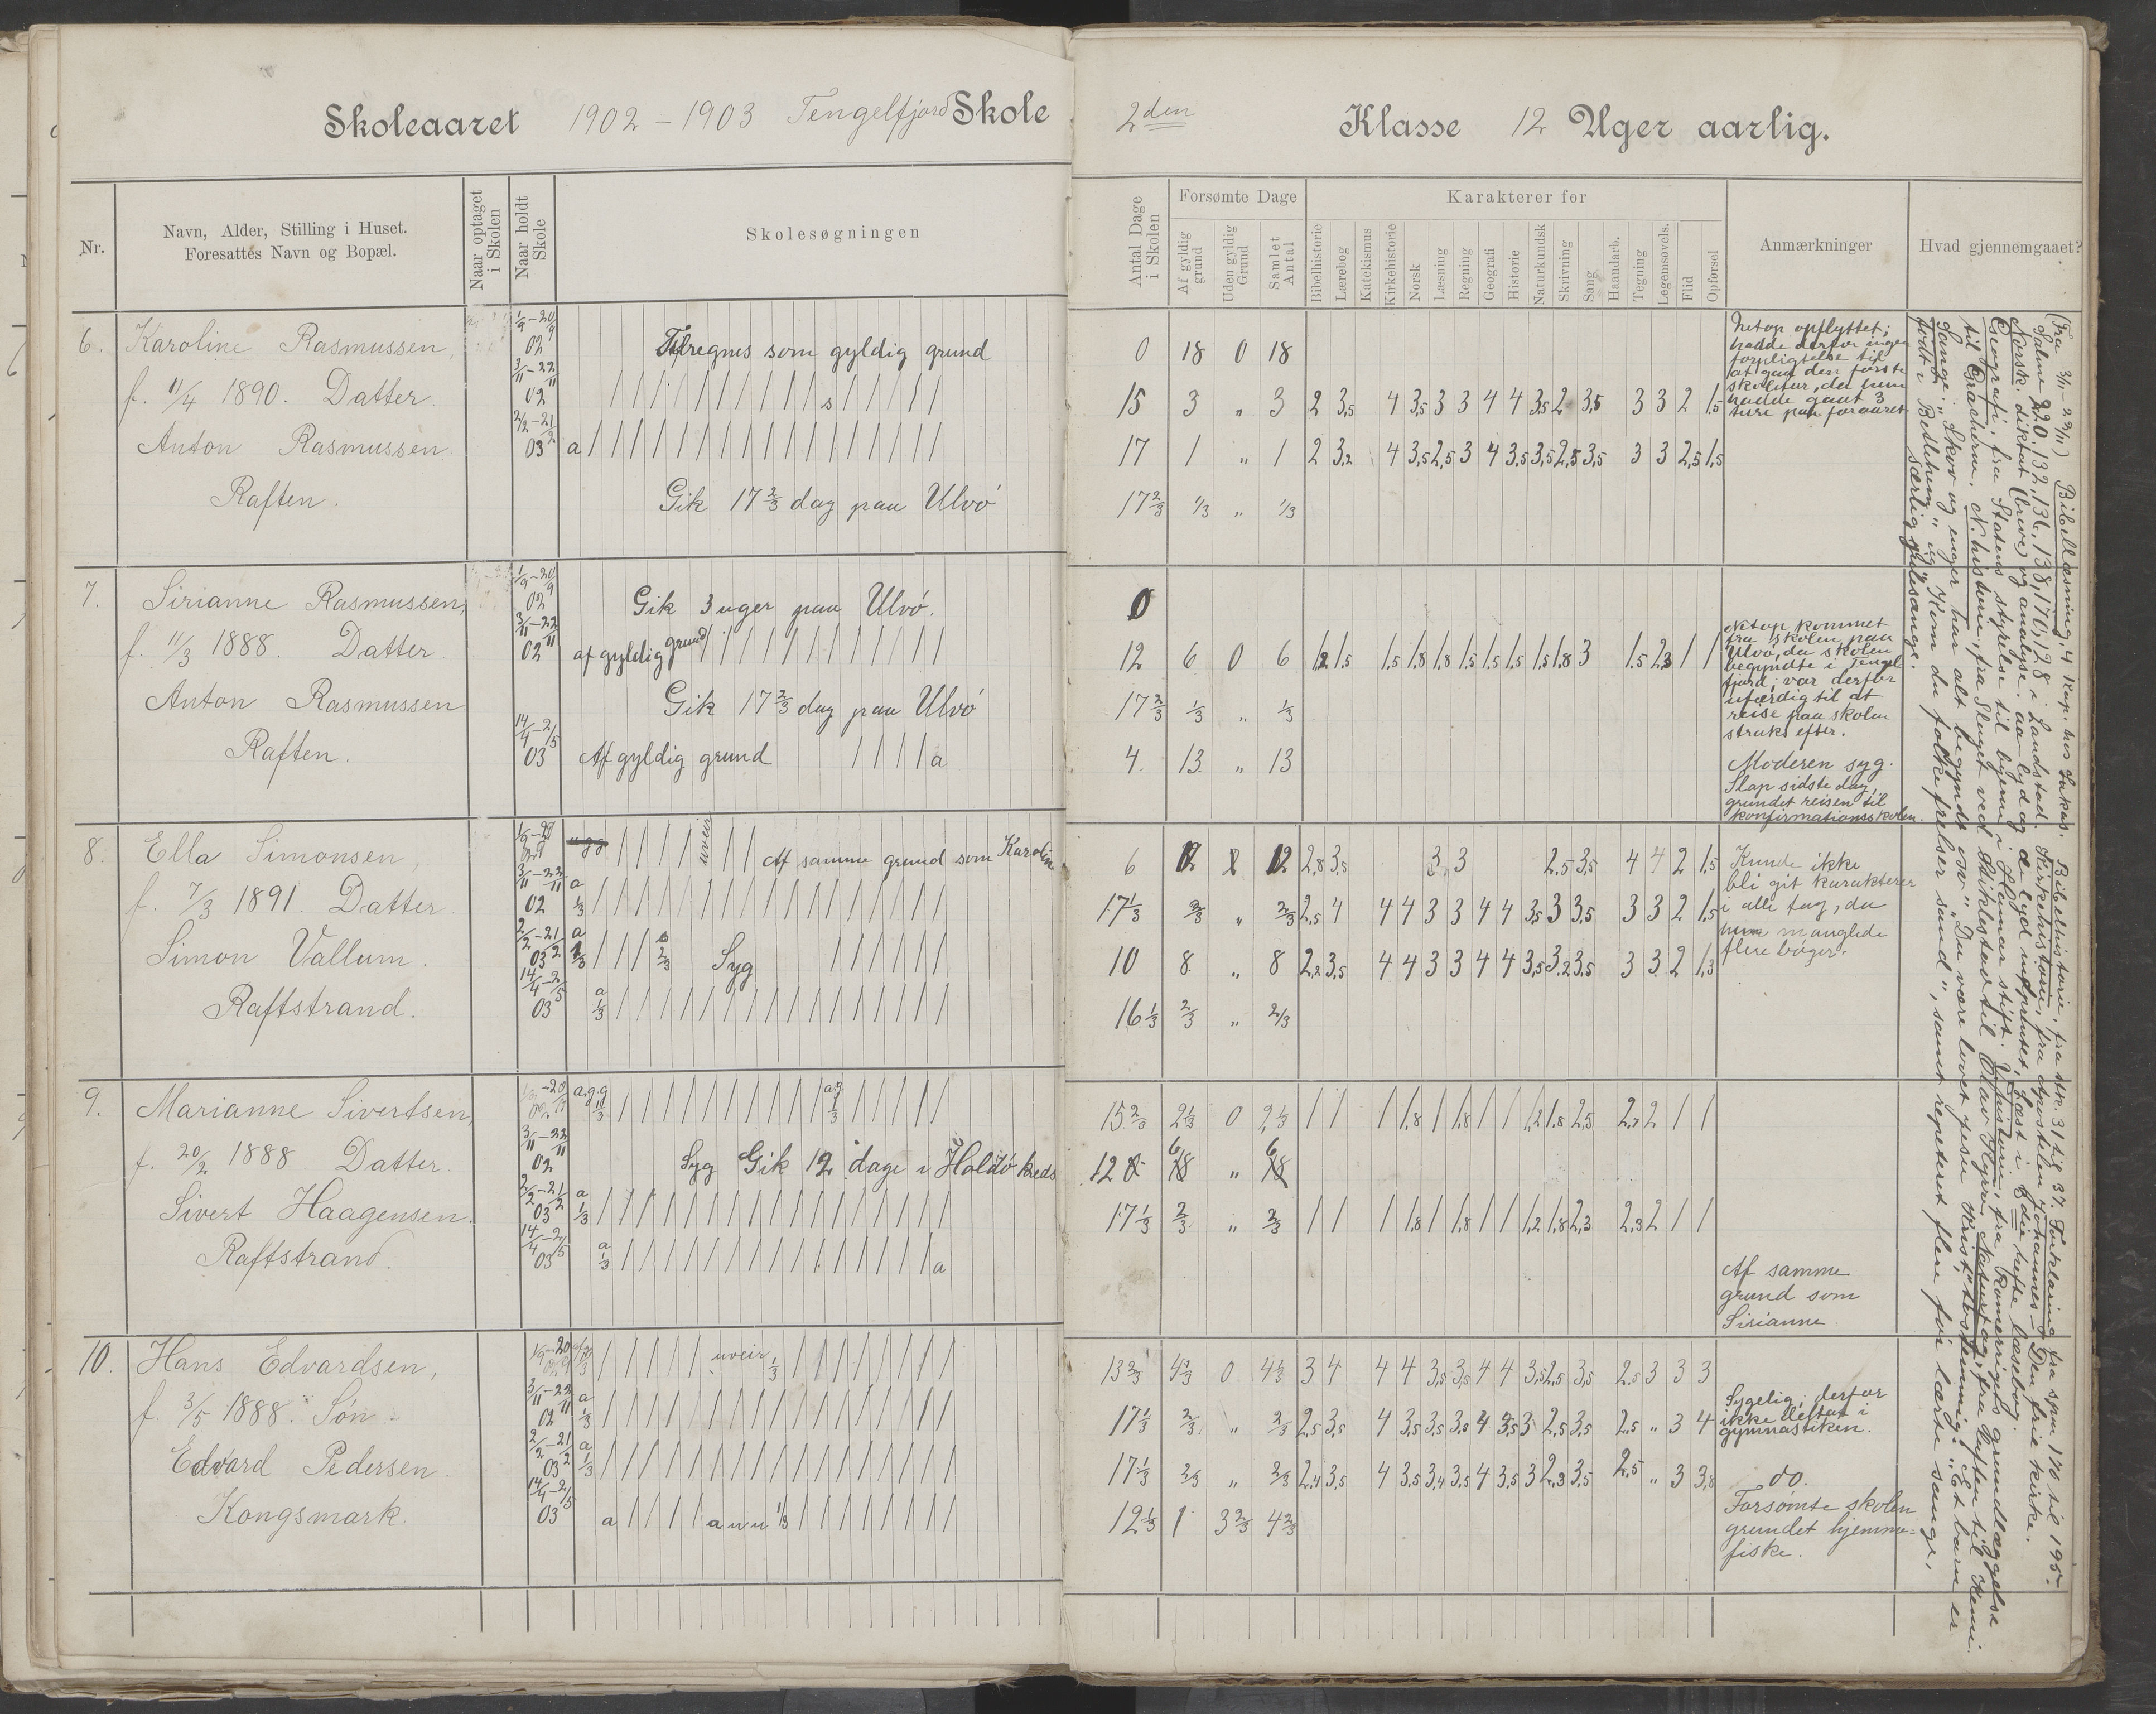 Skoleaaret 1902 - 1903 Tengelfjord Skole
Nr.
Navn, Alder, Stilling i Huset.
Foresattes Navn og Bopæl.
Naar optaget
i Skolen
Naar holdt
Skole
Skolesøgningen
6. Karoline Rasmussen,
f. 11/4 1890. Datter.
Anton Rasmussen
Raften.
1/9-20/9
02
3/11-22/11
02
2/2-21/2
03
Tilregnes som gyldig grund
s
a
Gik 17 2/3 dag paa Ulvö
7. Sirianne Rasmussen,
f. 11/3 1888. Datter
Anton Rasmussen
Raften.
1/9-20/9
02
3/11-22/11
02
14/4-2/5
03
Gik 3 uger paa Ulvö.
af gyldig grund
Gik 17 2/3 dag paa Ulvö
Af gyldig grund a
8. Ella Simonsen,
f. 7/3 1891. Datter
Simon Vallum.
Raftstrand.
3/11-22/11
02
2/2-21/2
03
14/4-2/5
03
Af samme grund som Karoline
a
1/3
a
1/3 2/3 Syg
a
1/3
9. Marianne Sivertsen,
f. 20/2 1888 Datter.
Sivert Haagensen.
Raftstrand.
3/11-22/11
02
2/2-21/2
03
14/4-2/5
03
Syg Gik 12 dage i Holdö kreds
a
1/3
a
1/3 a
10. Hans Edvardsen,
f. 3/5 1888. Sön.
Edvard Pedersen.
Kongsmark.
1/9-20/9
3/11-22/11
02
2/2-21/2
03
14/4-2/5
03
uveir 1/3
a
1/3
a
1/3
a a u u 1/3
2den Klasse 12 Uger aarlig.
Antal Dage
i Skolen
Forsømte Dage
Af gyldig
grund
Uden gyldig
Grund
Samlet
Antal
Karakterer for
Bibelhistorie
Lærebog
Katekismus
Kirkehistorie
Norsk
Læsning
Regning
Geografi
Historie
Naturkundsk
Skrivning
Sang
Haandarb.
Tegning
Legemsøvels.
Flid
Opførsel
Anmærkninger
Hvad gjennemgaaet?
0 18 0 18
15 3 " 3 2 3,5 4 3,5 3 3 4 4 3,5 2 3,5 3 3 2 1,5
17 1 " 1 2 3,2 4 3,5 2,5 3 4 3,5 3,5 2,5 3,5 3 3 2,5 1,5
17 2/3 1/3 " 1/3
Netop opflyttet;
hadde derfor ingen
forpligtelse til
at gaa den første
skoletur, da hun
hadde gaat 3
ture paa foraaret
0
12 6 0 6 1,2 1,5 1,5 1,8 1,8 1,5 1,5 1,5 1,5 1,8 3 1,5 2,3 1 1
17 2/3 1/3 " 1/3
4 13 " 13
Netop kommet
fra skolen paa
Ulvö, da skolen
begyndte i Tengel
fjord; var derfor
uferdig til at
reise paa skolen
straks efter.
Moderen syg.
Slap sidste dag,
grundet reisen til
konfirmationsskolen.
6 12 12 2,8 3,5 3 3 2,5 3,5 4 4 2 1,5
17 1/3 2/3 " 2/3 2,5 4 4 4 3 3 4 4 3,5 3 3,5 3 3 2 1,5
10 8 " 8 2,2 3,5 4 4 3 3 4 4 3,5 3,2 3,5 3 3 2 1,3
16 1/3 2/3 " 2/3
Kunde ikke
bli git karakterer
i alle fag, da
hun manglede
flere bøger.
15 2/3 2 1/3 0 2 1/3 1 1 1 1,8 1 1,8 1 1 1,2 1,8 2,5 2,7 2 1 1
12 6 " 6
17 1/3 2/3 " 2/3 1 1 1 1,8 1 1,8 1 1 1,2 1,8 2,3 2,3 2 1 1
Af samme
grund som
Sirianne.
13 2/3 4 1/3 0 4 1/3 3 4 4 4 3,5 3,5 4 4 3,5 2,5 3,5 2,5 3 3 3
17 1/3 2/3 " 2/3 2,5 3,5 4 3,5 3,5 3,8 4 3,5 3 2,5 3,5 2,5 " 3 4
17 1/3 2/3 " 2/3 2,4 3,5 4 3,5 3,4 3,5 4 3,5 3 2,3 3,5 2,5 " 3 3,8
12 1/3 1 3 2/3 4 2/3
Sygelig; derfor
ikke deltat i
gymnastiken.
do.
Forsömte skolen
grundet hjemme-
fiske.
(Fra 3/11-22/11) Bibellæsning, 4 kap. hos Lukas. Bibelhistorie, fra stk. 31 til 37. Forklaring fra spm 170 til 195.
Salme 220, 132, 136, 138, 170, 128 i Landstad. Kirkehistorie, fra Apostelen Johannes - Den frie kirke.
Norsk: diktat (breve) og analyse: aa-lyd og æ-lyd indprentet. Læst i Edie hefte læsebog.
Geografi, fra Statens styrelse til byene i Hamar stift. Historie, fra Romerrigets grundlæggelse
til Gracherne. N. historie, fra Slaget ved Stiklestad til Olav Kyrre. Naturfag, fra Luften til Kemi.
Sange: "Skov og enger har alt begyndt osv." "Du være lovet Jesu Krist", tostemmig: "Et barn er
født i Betlehem" og "Kom du folkefrelser sand", samt repeteret flere før lærte sange,
særlig julesange.